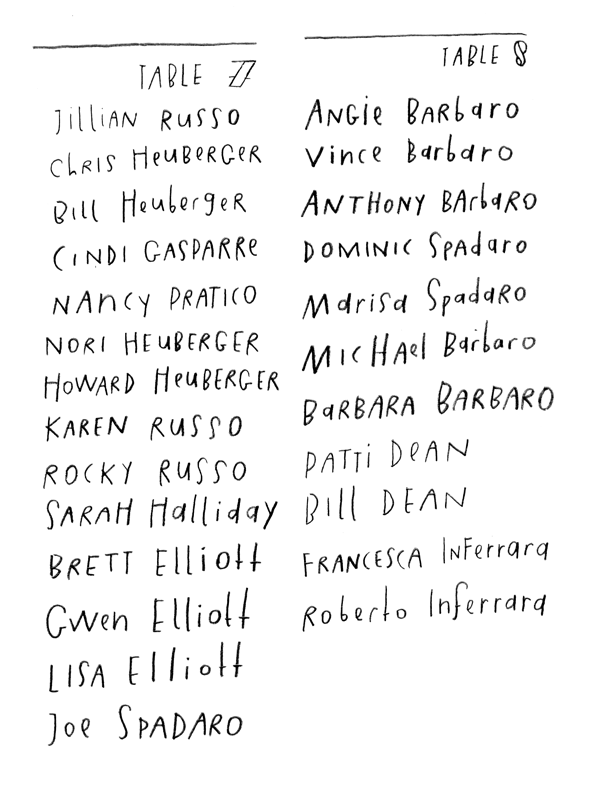 TABLE 7
JilliAN RUSSO
CHRIS HEUBERGER
Bill HeubergeR
CINDI GASPARRe
NANCY PRATICO
NORI HEUBERGER
HOWARD HEUBERGER
KAREN RUSSO
ROCKY RUSSO
SARAH Halliday
BRETT Elliott
Gwen Elliott
LISA Elliott
Joe SPADARO
TABLE 8
ANGie BARbaro
Vince Barbaro
ANTHONY BArbaRO
DOMINIC SpAdaro
Marisa SpadaRo
MICHAel Barbaro
BaRBARA BARBARO
PATTi DeAN
Bill DEAN
FRANCESCA INFerrara
Roberto Inferrara